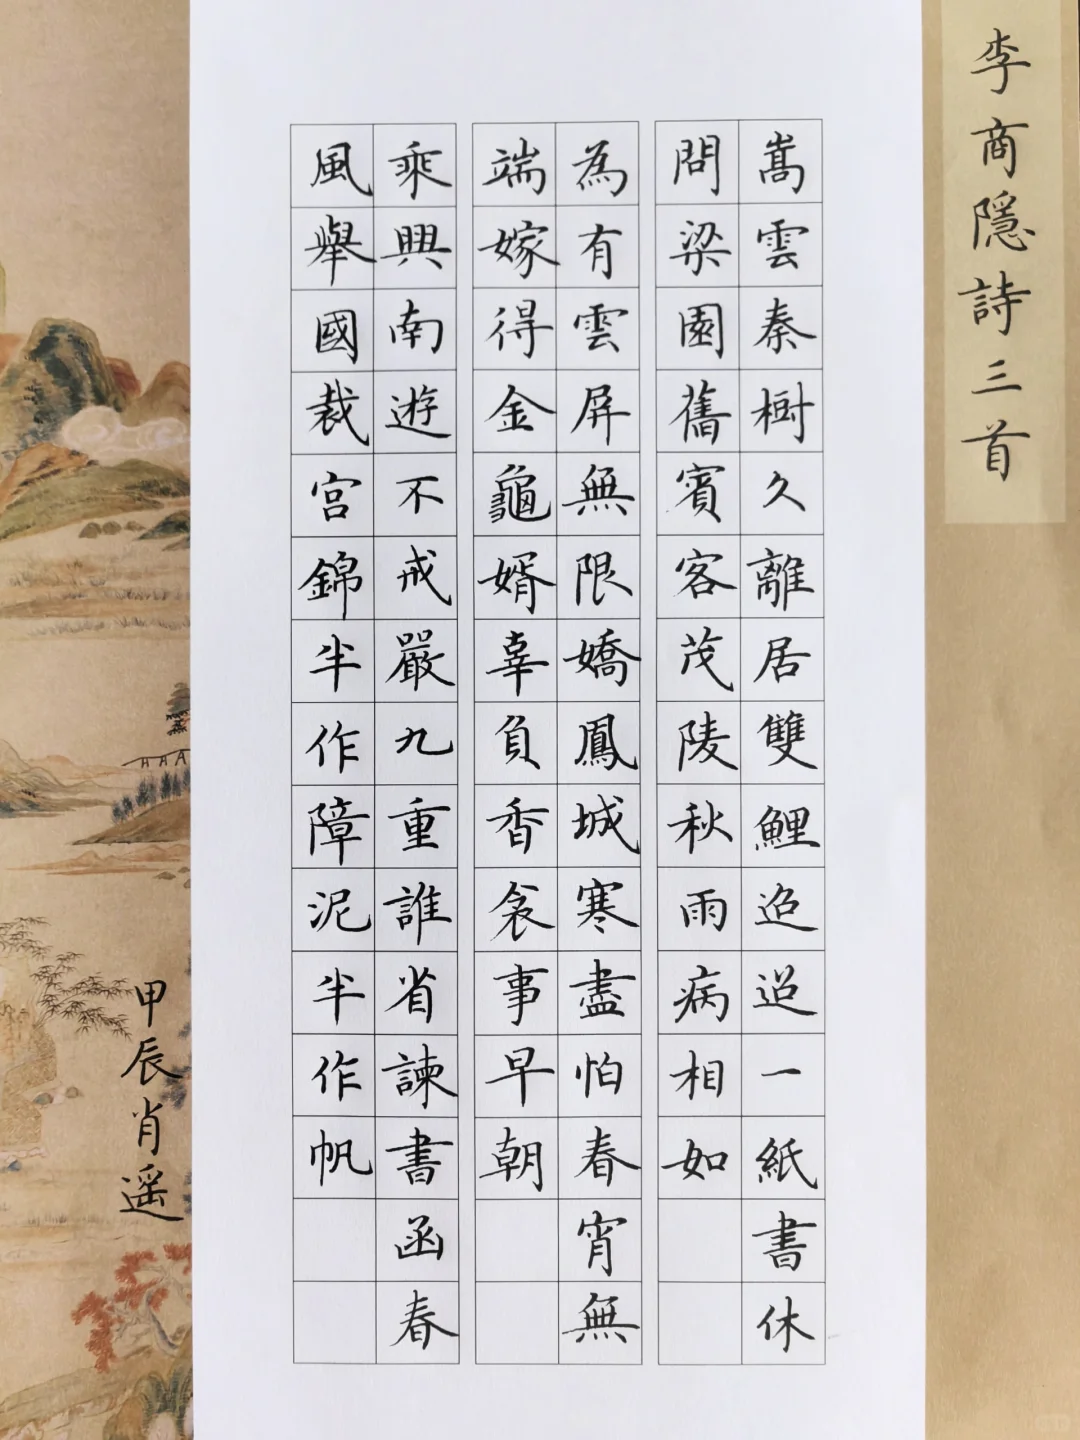 李商隱詩三首
嵩雲秦樹久離居雙鯉迢迢一紙書休
問梁園舊賓客茂陵秋雨病相如
為有雲屏無限嬌鳳城寒盡怕春宵無
端嫁得金龜婿辜負香衾事早朝
乘興南遊不戒嚴九重誰省諫書函春
風舉國裁宮錦半作障泥半作帆
甲辰肖遥